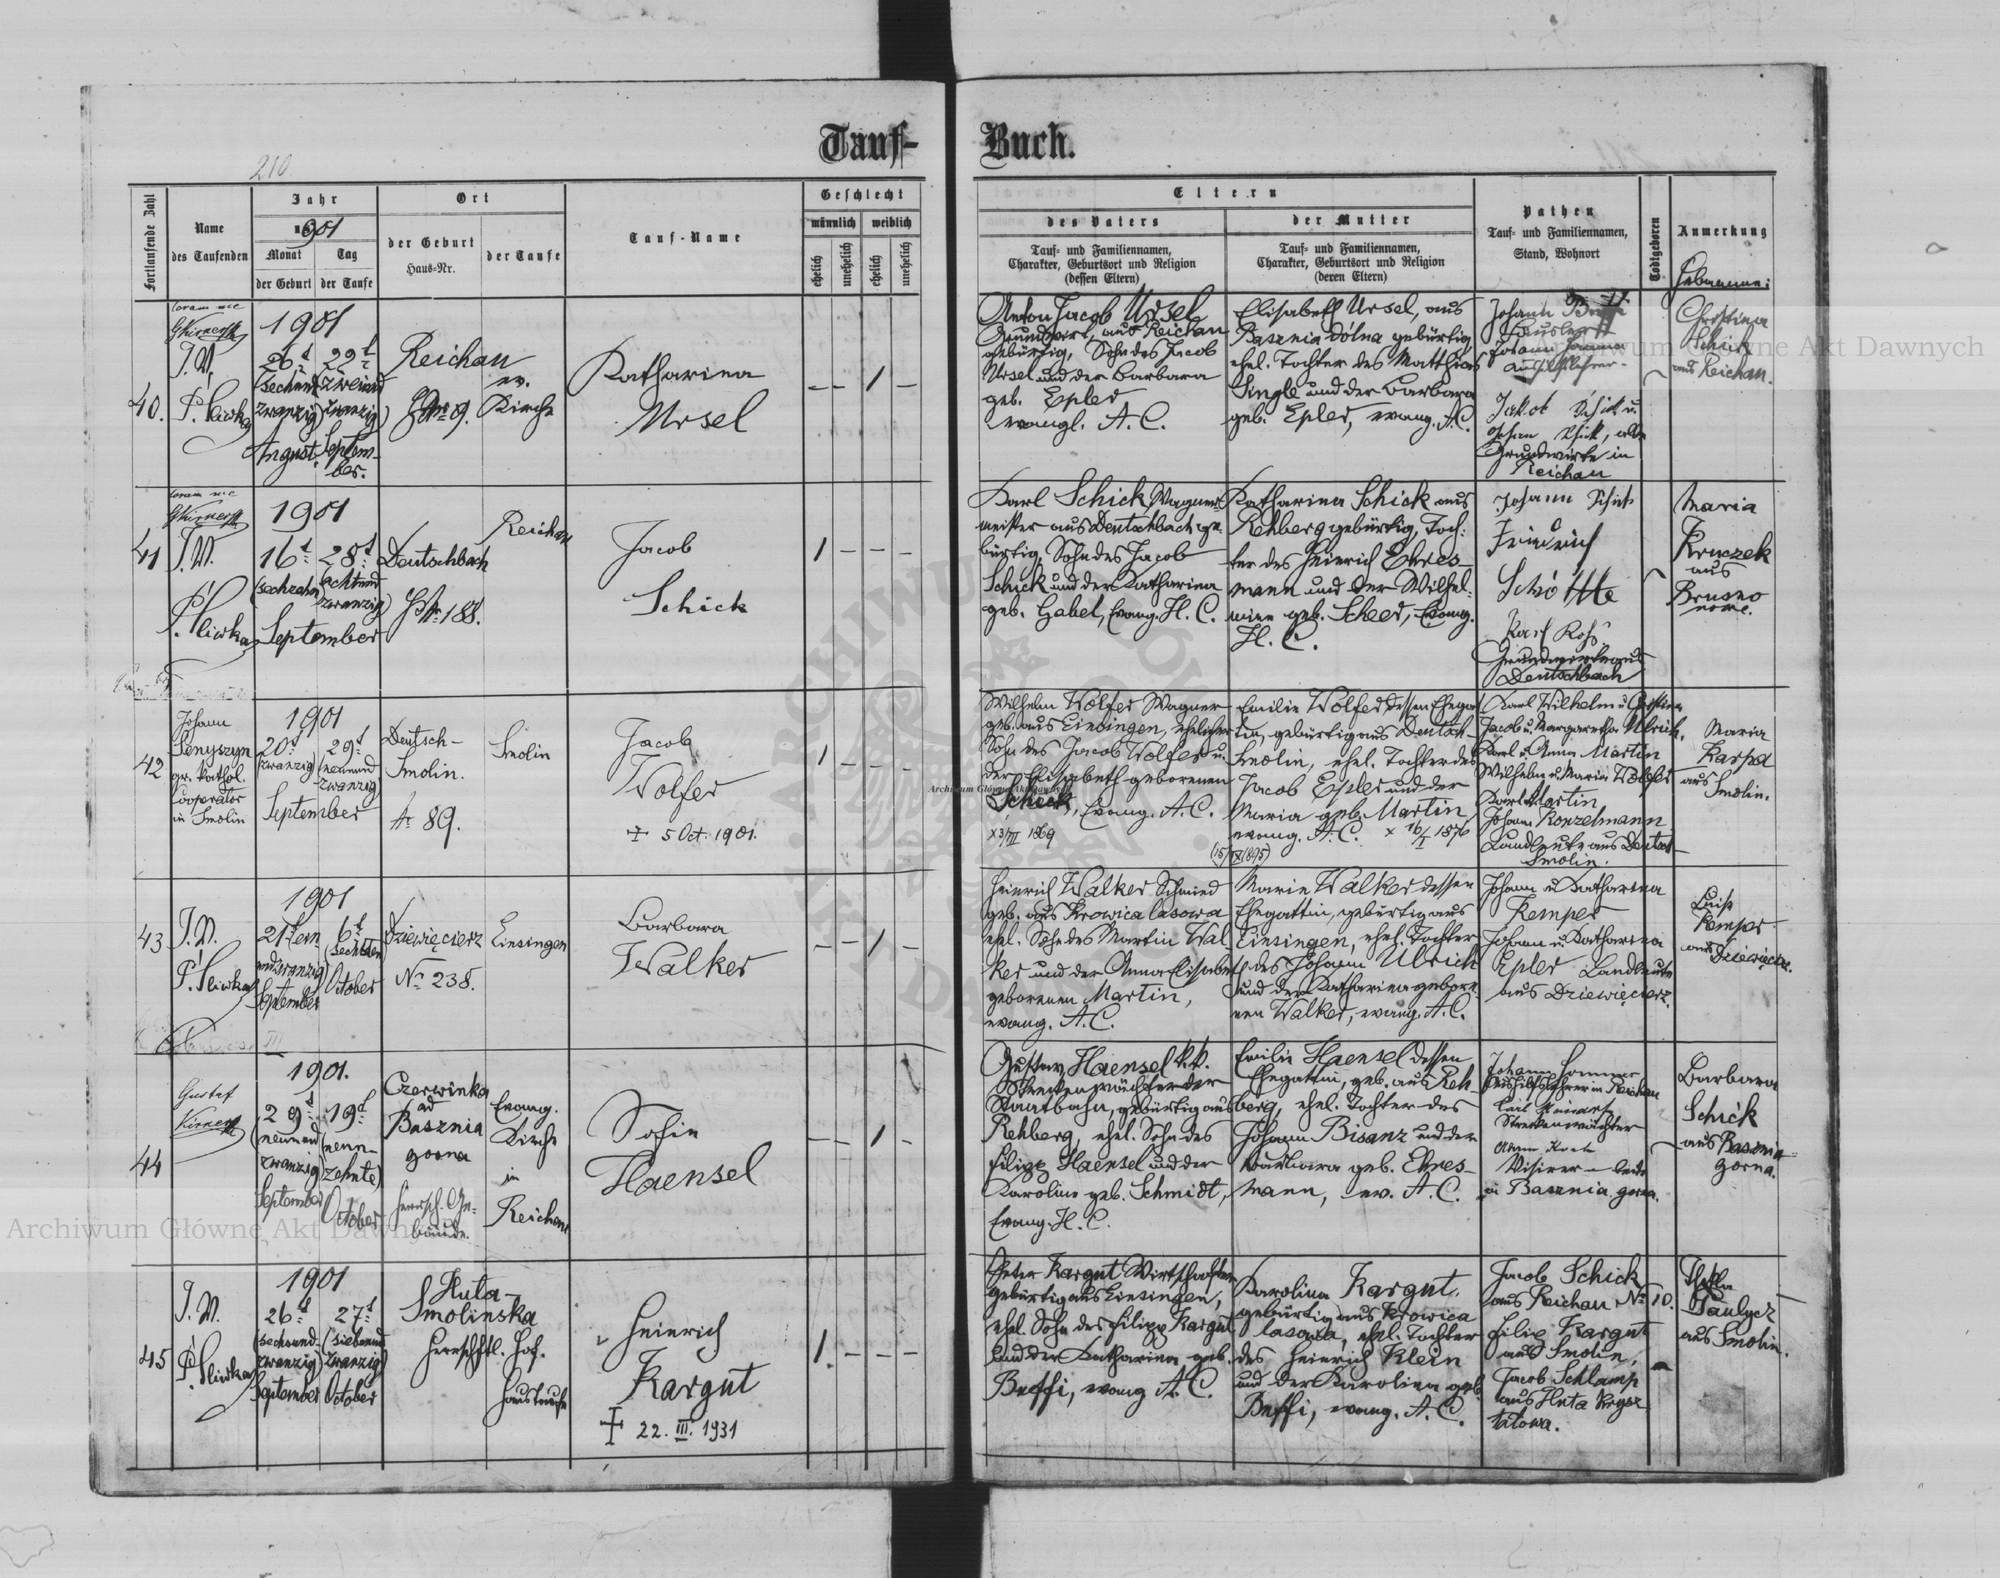 Tauf-
Buch.
210
Fortlaufende Zahl
Name
des Taufenden
Jahr
1901
Monat
Tag
der Geburt
der Taufe
Ort
der Geburt
Haus-Nr.
der Taufe
Tauf-Name
Geschlecht
männlich
weiblich
ehelich
unehelich
ehelich
unehelich
Eltern
des Vaters
Tauf- und Familiennamen,
Charakter, Geburtsort und Religion
(dessen Eltern)
der Mutter
Tauf- und Familiennamen,
Charakter, Geburtsort und Religion
(deren Eltern)
Pathen
Tauf- und Familiennamen,
Stand, Wohnort
Todtgeboren
Anmerkung
Hebamme:
40.
coram me
J. N.
P. Sliwka
1901
26t
(sechsund
zwanzig)
August
29t
September
Reichau
HNr 9.
ev.
Kirche
Katharina
Ursel
– – 1 –
Anton Jacob Ursel
Grundwirt, aus Reichau
gebürtig, Sohn des Jacob
Ursel und der Barbara
geb. Epler
evangl. A. C.
Elisabeth Ursel, aus
Basznia dólna gebürtig,
ehel. Tochter des Matthias
Single und der Barbara
geb. Epler, evang. A. C.
Johann
Johann Sommer
Aushilfslehrer.
Jakob Schick u.
Johan Schick, alle
Grundwirte in
Reichau
Christina
Schick
aus Reichau.
41
coram me
J. N.
P. Sliwka
1901
16t
(sechzehn)
28t
(achtund
zwanzig)
September
Deutschbach
HNr 188.
Reichau
Jacob
Schick
1 – – –
Karl Schick, Wagner-
meister aus Deutschbach ge-
bürtig, Sohn des Jacob
Schick und der Katharina
geb. Gabel, Evang. H. C.
Katharina Schick aus
Rehberg gebürtig, Toch-
ter des Heinrich Ehres-
mann und der Wilhel-
mine geb. Scheer, Evang.
H. C.
Johann Schick
Friedrich
Karl Rohs
Grundwirte aus
Deutschbach
Maria
Kruczek
aus
Brusno
nowe.
42
Johann
Senyszyn
gr. kathol.
Cooperator
in Smolin
1901
20t
(zwanzig)
29t
(neunund
zwanzig)
September
Deutsch-
Smolin.
Nr 89.
Smolin
Jacob
Wolfer
+ 5 Oct. 1901.
1 – – –
Wilhelm Wolfer Wagner
geb. aus Einsingen, ehelicher
Sohn des Jacob Wolfer u.
der Elisabeth geborenen
Schick, Evang. A. C.
x 3/VII 1869
Emilie Wolfer dessen Ehegat-
tin, gebürtig aus Deutsch-
Smolin, ehel. Tochter des
Jacob Epler und der
Maria geb. Martin
evang. A. C. x 16/I 1876
(15/IX 1895)
Karl Wilhelm u Christina
Jacob u. Margaretha Ulrich,
Karl u. Anna Martin
Wilhelm u. Maria Wolfer
Karl Martin
Johann Konzelmann
Landleute aus Deutsch
Smolin.
Maria
Karpa
aus
Smolin.
43
J. N.
P. Sliwka
1901
21ten
September
6t
(sechsten)
October
Dziewięcierz
No 238.
Einsingen
Barbara
Walker
– – 1 –
Heinrich Walker Schmied
geb. aus Krowica lasowa
ehel. Sohn des Martin Wal
ker und der Anna Elisabeth
geborenen Martin,
evang. A. C.
Marie Walker dessen
Ehegattin, gebürtig aus
Einsingen, ehel. Tochter
des Johann Ulrich
und der Katharina gebore-
nen Walker, evang. A. C.
Johann u. Katharina
Kemper
Johann u. Katharina
Epler Landleute
aus Dziewięcierz.
Luise
Kemper
aus Dziewięcierz.
44
Gustaf
1901.
29t
(neunund
zwanzig)
September
19t
(neun-
zehnte)
October
Czerwinka
ad
Basznia
gorna
herrsch. Ge-
bäude.
Evang.
Kirche
in
Reichau
Sofie
Haensel
– – 1 –
Gustav Haensel k.k.
Streckenwächter der
Staatbahn, gebürtig aus
Rehberg, ehel. Sohn des
Filipp Haensel und der
Karoline geb. Schmidt,
Evang. H. C.
Emilie Haensel dessen
Ehegattin, geb. aus Reh-
berg, ehel. Tochter des
Johann Bisanz und der
Barbara geb. Ehres-
mann, ev. A. C.
Johann Sommer
Aushilfslehrer in Reichau
Streckenwächter
Visirer – beide
in Basznia gorna.
Barbara
Schick
aus Basznia
gorna.
45
J. N.
P. Sliwka
1901
26t
(sechsund-
zwanzig)
September
27t
(siebenund
zwanzig)
October
Huta-
Smolinska
Herrschftl. Hof.
Haustaufe
Heinrich
Kargut
+ 22. III. 1931
1. – – –
Peter Kargut Wirtschafter
gebürtig aus Einsingen,
ehel. Sohn des Filipp Kargut
und der Katharina geb.
Beffi, evang A. C.
Karolina Kargut,
gebürtig aus Krowica
lasowa, ehel. Tochter
des Heinrich Klein
und der Karolina geb.
Beffi, evang. A. C.
Jacob Schick
aus Reichau No 10.
Filip Kargut
aus Smolin,
Jacob Schlamp
aus Huta Krysz-
talowa.
Thekla
Paulycz
aus Smolin.
Archiwum Główne Akt Dawnych
Archiwum Główne Akt Dawnych
Archiwum Główne Akt Dawnych